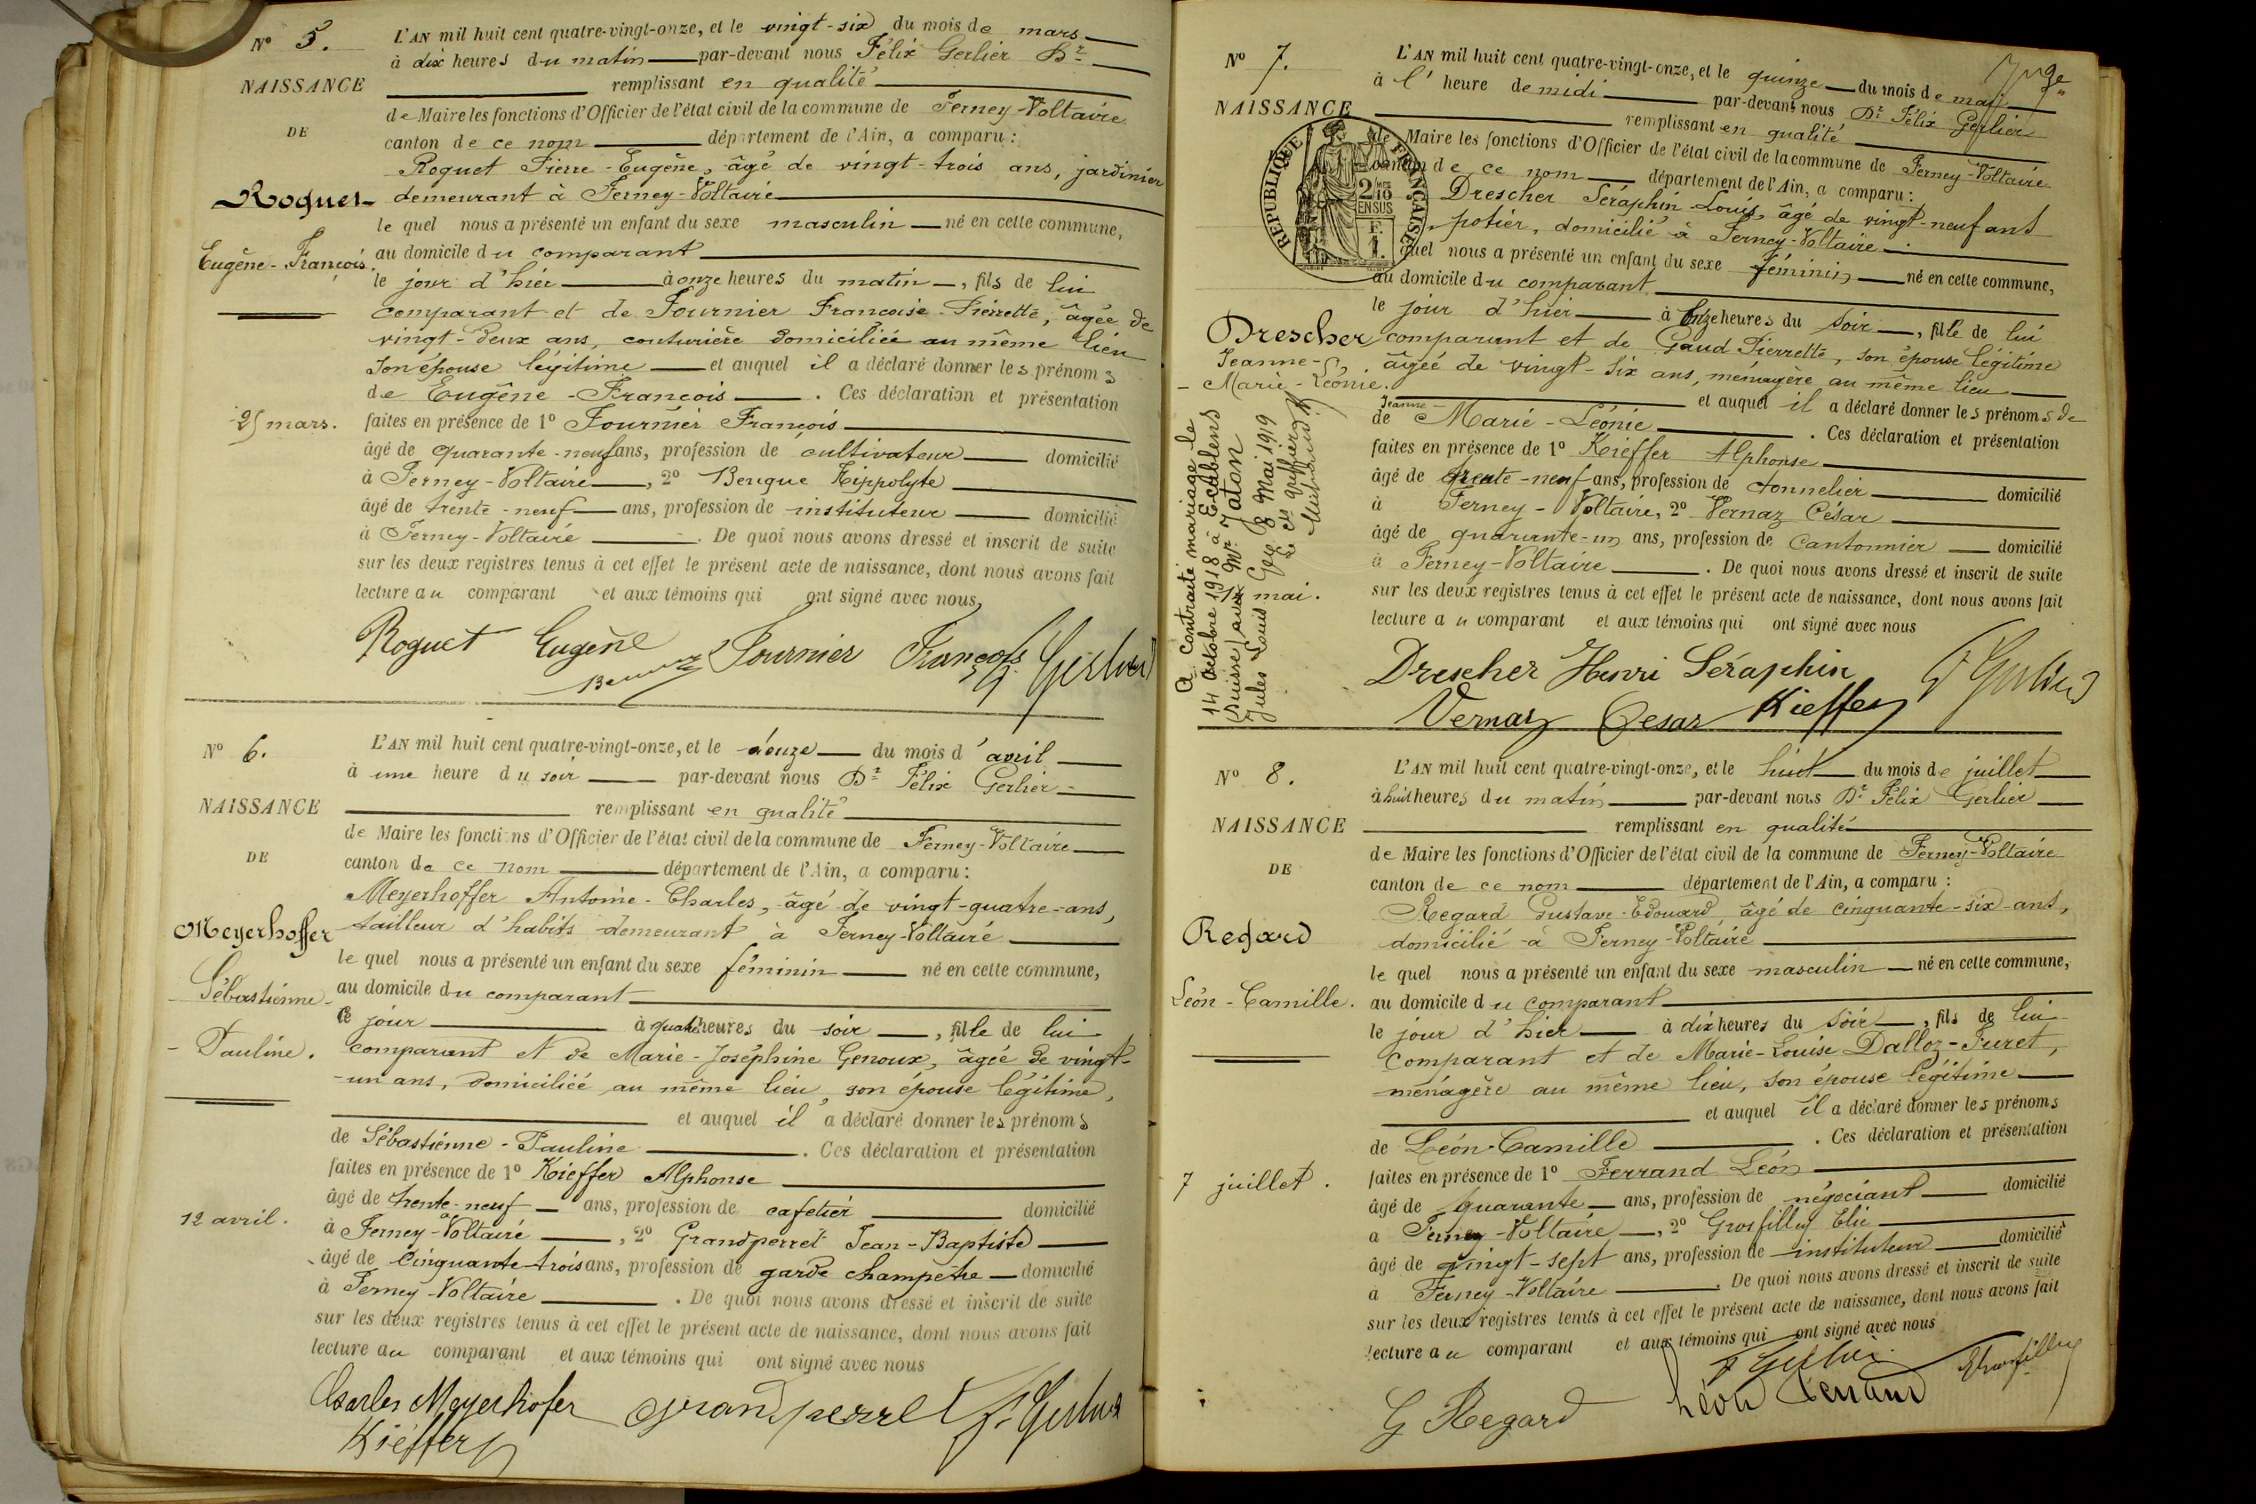 N° 5.
NAISSANCE
DE
Roquet
Eugène-François.
25 mars.
L'AN mil huit cent quatre-vingt-onze, et le vingt-six du mois de mars
à dix heures du matin par-devant nous Félix Gerlier Dr
remplissant en qualité
de Maire les fonctions d'Officier de l'état civil de la commune de Ferney-Voltaire
canton de ce nom département de l'Ain, a comparu :
Roquet Pierre-Eugène, âgé de vingt-trois ans, jardinier
demeurant à Ferney-Voltaire
le quel nous a présenté un enfant du sexe masculin né en cette commune,
au domicile du comparant
le jour d'hier à onze heures du matin, fils de lui
comparant et de Fournier Francoise Pierrette, âgée de
vingt-deux ans, couturière domiciliée au même lieu
son épouse légitime et auquel il a déclaré donner les prénoms
de Eugène-François. Ces déclaration et présentation
faites en présence de 1° Fournier François
âgé de quarante-neuf ans, profession de cultivateur domicilié
à Ferney-Voltaire, 2° Bengue Hippolyte
âgé de trente-neuf ans, profession de instituteur domicilié
à Ferney-Voltaire. De quoi nous avons dressé et inscrit de suite
sur les deux registres tenus à cet effet le présent acte de naissance, dont nous avons fait
lecture au comparant et aux témoins qui ont signé avec nous,
Roquet Eugène Fournier François Gerlier
N° 6.
NAISSANCE
DE
Meyerhoffer
Sébastienne-
-Pauline.
12 avril.
L'AN mil huit cent quatre-vingt-onze, et le douze du mois d'avril
à une heure du soir par-devant nous Dr Félix Gerlier
remplissant en qualité
de Maire les fonctions d'Officier de l'état civil de la commune de Ferney-Voltaire
canton de ce nom département de l'Ain, a comparu :
Meyerhoffer Antoine-Charles, âgé de vingt-quatre-ans,
tailleur d'habits demeurant à Ferney-Voltaire
le quel nous a présenté un enfant du sexe féminin né en cette commune,
au domicile du comparant
ce jour à quatre heures du soir, fille de lui
comparant et de Marie-Joséphine Genoux, âgée de vingt-
-un ans, domiciliée au même lieu, son épouse légitime,
et auquel il a déclaré donner les prénoms
de Sébastienne-Pauline. Ces déclaration et présentation
faites en présence de 1° Kieffer Alphonse
âgé de trente-neuf ans, profession de cafetier domicilié
à Ferney-Voltaire, 2° Grandperret Jean-Baptiste
âgé de Cinquante-trois ans, profession de garde champêtre domicilié
à Ferney-Voltaire. De quoi nous avons dressé et inscrit de suite
sur les deux registres tenus à cet effet le présent acte de naissance, dont nous avons fait
lecture au comparant et aux témoins qui ont signé avec nous
Charles Meyerhofer Grandperret F. Gerlier
Kieffer
N° 7.
NAISSANCE
RÉPUBLIQUE FRANÇAISE
2/10 EN SUS
F. 1.
Drescher
Jeanne-
-Marie-Léonie.
14 mai.
A contracté mariage le
14 octobre 1918 à Ecublens
(Suisse) avec Mr. Jaton
Jules Louis Gex 8 Mai 1919
Le Greffier
L'AN mil huit cent quatre-vingt-onze, et le quinze du mois de mai
à l'heure de midi par-devant nous Dr Félix Gerlier
remplissant en qualité
de Maire les fonctions d'Officier de l'état civil de la commune de Ferney-Voltaire
canton de ce nom département de l'Ain, a comparu :
Drescher Séraphin Louis, âgé de vingt-neuf ans
potier, domicilié à Ferney-Voltaire
quel nous a présenté un enfant du sexe féminin né en cette commune,
au domicile du comparant
le jour d'hier à onze heures du soir, fille de lui
comparant et de Gaud Pierrette, son épouse légitime
âgée de vingt-six ans, ménagère au même lieu
et auquel il a déclaré donner les prénoms de
de Jeanne-Marie-Léonie. Ces déclaration et présentation
faites en présence de 1° Kieffer Alphonse
âgé de trente-neuf ans, profession de tonnelier domicilié
à Ferney-Voltaire, 2° Vernaz César
âgé de quarante-un ans, profession de Cantonnier domicilié
à Ferney-Voltaire. De quoi nous avons dressé et inscrit de suite
sur les deux registres tenus à cet effet le présent acte de naissance, dont nous avons fait
lecture au comparant et aux témoins qui ont signé avec nous
Drescher Henri Séraphin F. Gerlier
Vernaz Cesar Kieffer
N° 8.
NAISSANCE
DE
Regard
Léon-Camille.
7 juillet.
L'AN mil huit cent quatre-vingt-onze, et le huit du mois de juillet
à huit heures du matin par-devant nous Dr Félix Gerlier
remplissant en qualité
de Maire les fonctions d'Officier de l'état civil de la commune de Ferney-Voltaire
canton de ce nom département de l'Ain, a comparu :
Regard Gustave-Edouard, âgé de cinquante-six-ans,
domicilié à Ferney-Voltaire
le quel nous a présenté un enfant du sexe masculin né en cette commune,
au domicile du comparant
le jour d'hier à dix heures du soir, fils de lui
comparant et de Marie-Louise Dalloz-Furet,
ménagère au même lieu, son épouse légitime
et auquel il a déclaré donner les prénoms
de Léon-Camille. Ces déclaration et présentation
faites en présence de 1° Ferrand Léon
âgé de quarante ans, profession de négociant domicilié
à Ferney-Voltaire, 2° Grosfilley Elie
âgé de vingt-sept ans, profession de instituteur domicilié
à Ferney-Voltaire. De quoi nous avons dressé et inscrit de suite
sur les deux registres tenus à cet effet le présent acte de naissance, dont nous avons fait
lecture au comparant et aux témoins qui ont signé avec nous
F. Gerlier Grosfilley
G Regard Léon Ferrand